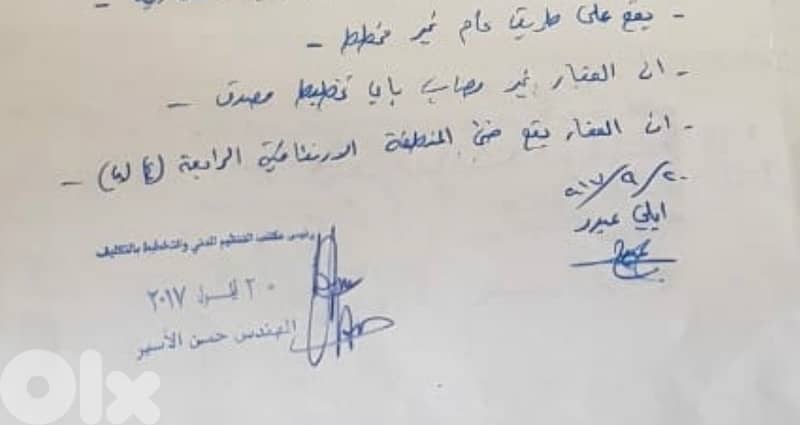 - يقع على طريق عام غير مخطط -
- ان العقار غير مصاب باي تخطيط مصدق -
- ان العقار يقع ضمن المنطقة الارتفاقية الرابعة -
٢٠/٩/٢٠١٧
ايلي عبدو
رئيس مكتب التنظيم المدني والتخطيط بالتكليف
٢٠ ايلول ٢٠١٧
المهندس حسن الأسير
Olx